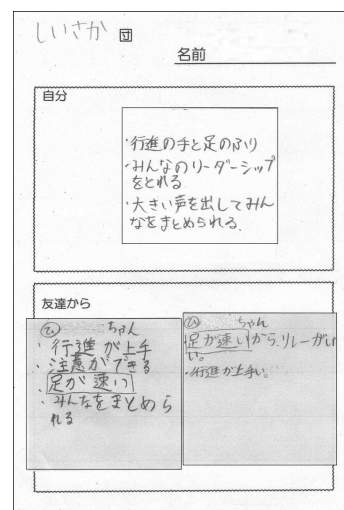 しいさか 団
名前
自分
・行進の手と足のふり
・みんなのリーダーシップ
をとれる
・大きい声を出してみん
なをまとめられる。
友達から
ひ ちゃん
・行進が上手
・注意ができる
・足が速い
・みんなをまとめら
れる
ちゃん
足が速いから、リレーがい
い。
・行進が上手い。